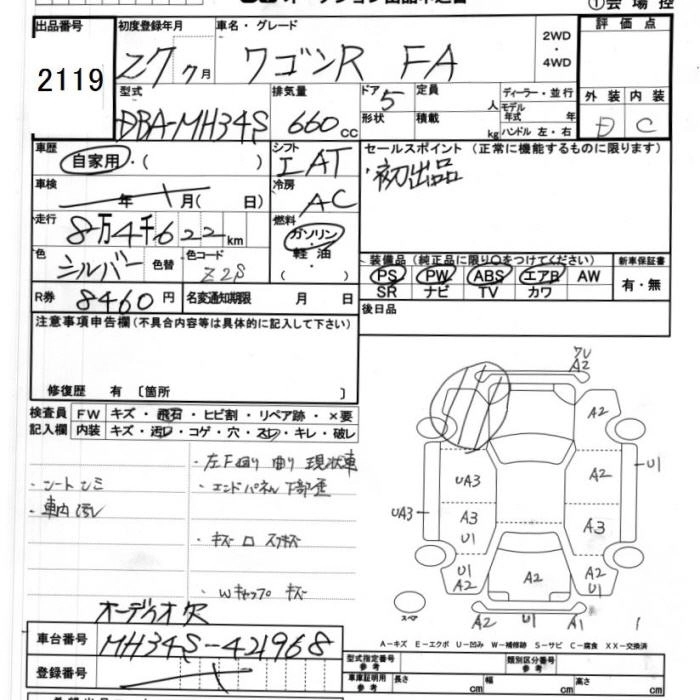 ①会場控
出品番号 初度登録年月 車名・グレード 2WD 評価点
2119 27 7月 ワゴンR FA ・4WD
型式 排気量 ドア 定員 ディーラー・並行 外装 内装
DBA-MH34S 660cc 5 人 モデル年式 年 D C
形状 積載 kg ハンドル 左・右
車歴 シフト セールスポイント (正常に機能するものに限ります)
自家用・( ) IAT 初出品
車検 年 月( 日) 冷房 AC
走行 8万4千622km 燃料
ガソリン・軽油・( )
色 シルバー 色替 色コード Z2S 装備品 (純正品に限り○をつけてください) 新車保証書
PS PW ABS エアB AW 有・無
R券 8460円 名変通知期限 月 日 SR ナビ TV カワ
後日品
注意事項申告欄(不具合内容等は具体的に記入して下さい)
修復歴 有 〔箇所 〕
検査員 FW キズ・飛石・ヒビ割・リペア跡・×要
記入欄 内装 キズ・汚レ・コゲ・穴・スレ・キレ・破レ
・左F回り 曲り 現状車
・シートシミ ・エンドパネル下部歪
・車内汚レ
・キズ ロ スリキズ
・Wキャップ キズ
オーディオ欠
車台番号 MH34S-421968
登録番号
ワレ
A2
A2
UA3 A2 U1
UA3 A3 U1 A3
U1 A2 A2 A2 U1
スペア A2 U1 A1
A-キズ E-エクボ U-凹み W-補修跡 S-サビ C-腐食 XX-交換済
型式指定番号 参考 類別区分番号 参考
車庫証明用 参考 長さ cm 幅 cm 高さ cm